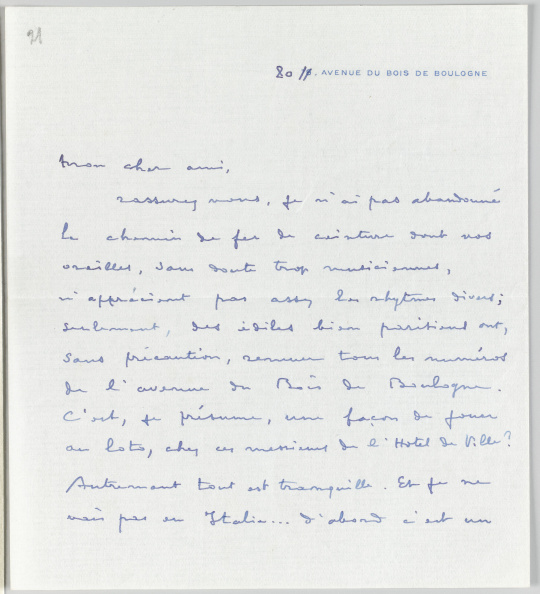 91
80, AVENUE DU BOIS DE BOULOGNE
Mon cher ami,
rassurez vous, je n'ai pas abandonné
le chemin de fer de ceinture dont vos
oreilles, sans doute trop musiciennes,
n'apprécient pas assez les rhytmes divers;
seulement, des édiles bien parisiens ont,
sans précaution, remuer tous les numéros
de l'avenue du Bois de Boulogne.
C'est, je présume, une façon de jouer
au loto, chez ces messieurs de l'Hotel de Ville?
Autrement tout est tranquille. Et je ne
vais pas en Italie... d'abord c'est un